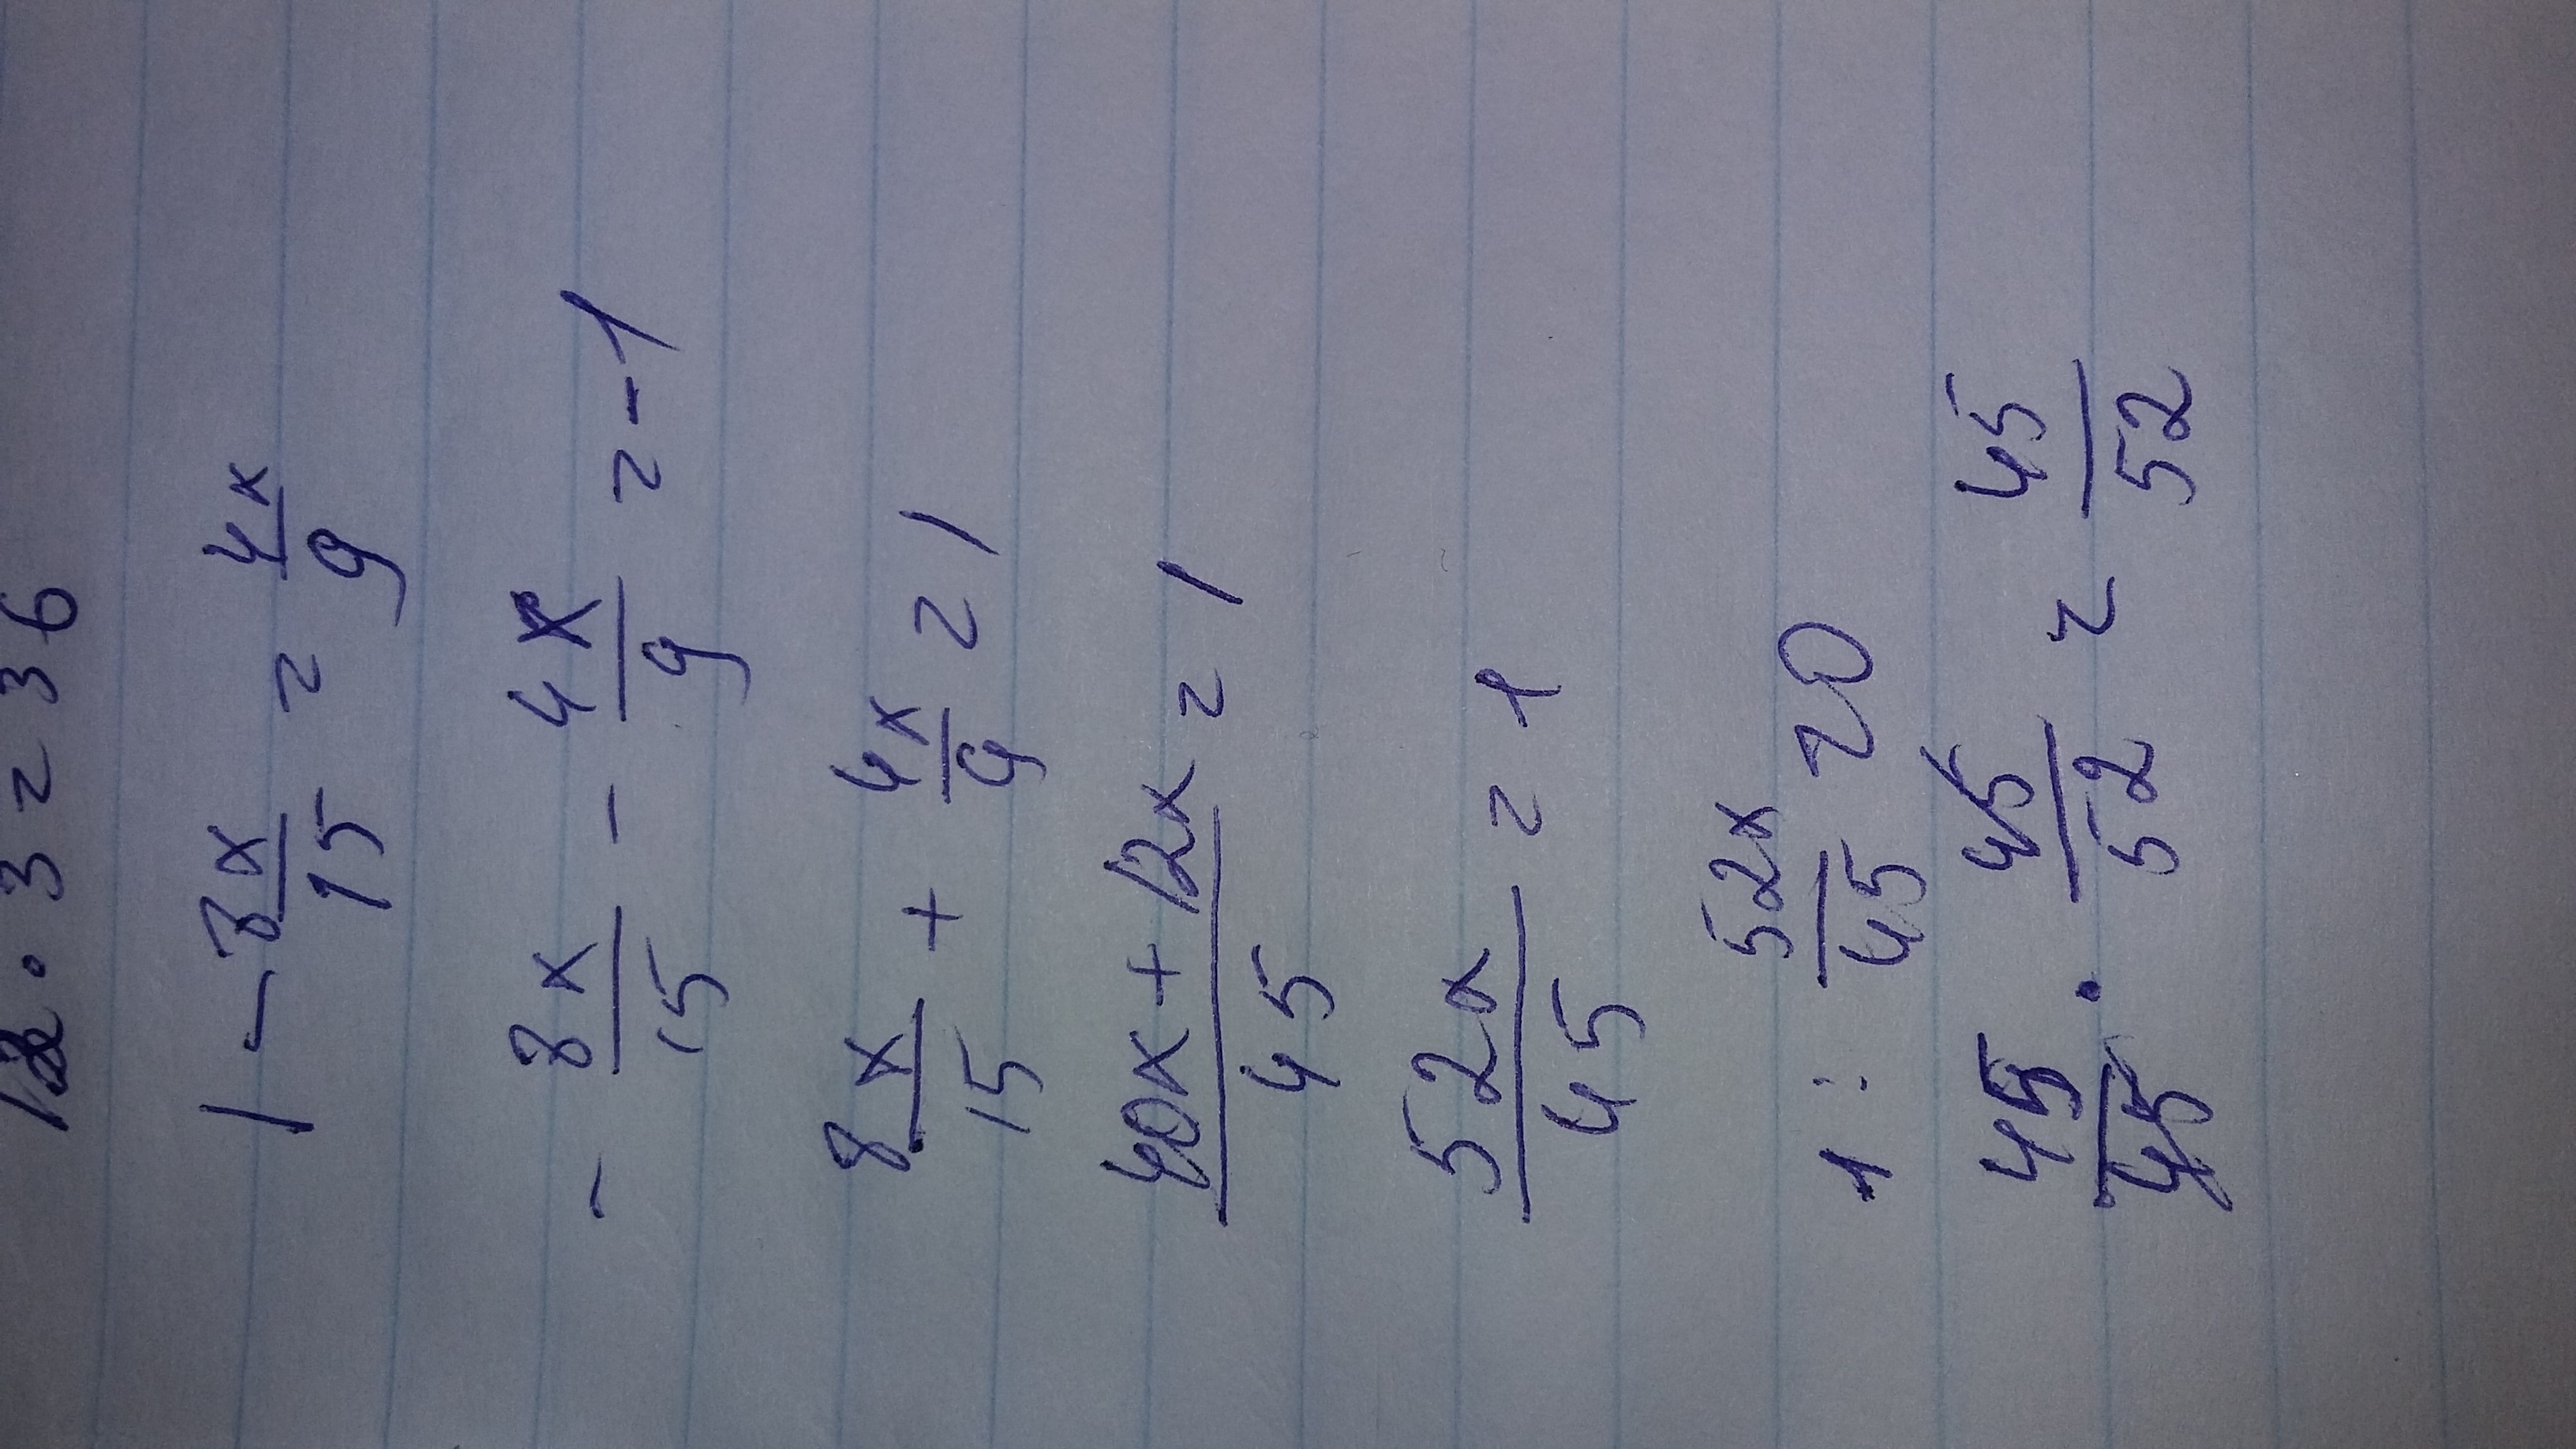 12 · 3 = 36
1 - 8x/15 = 4x/9
- 8x/15 - 4x/9 = -1
8x/15 + 4x/9 = 1
40x + 12x/45 = 1
52x/45 = 1
1 : 52x/45 = 0
45/45 · 45/52 = 45/52